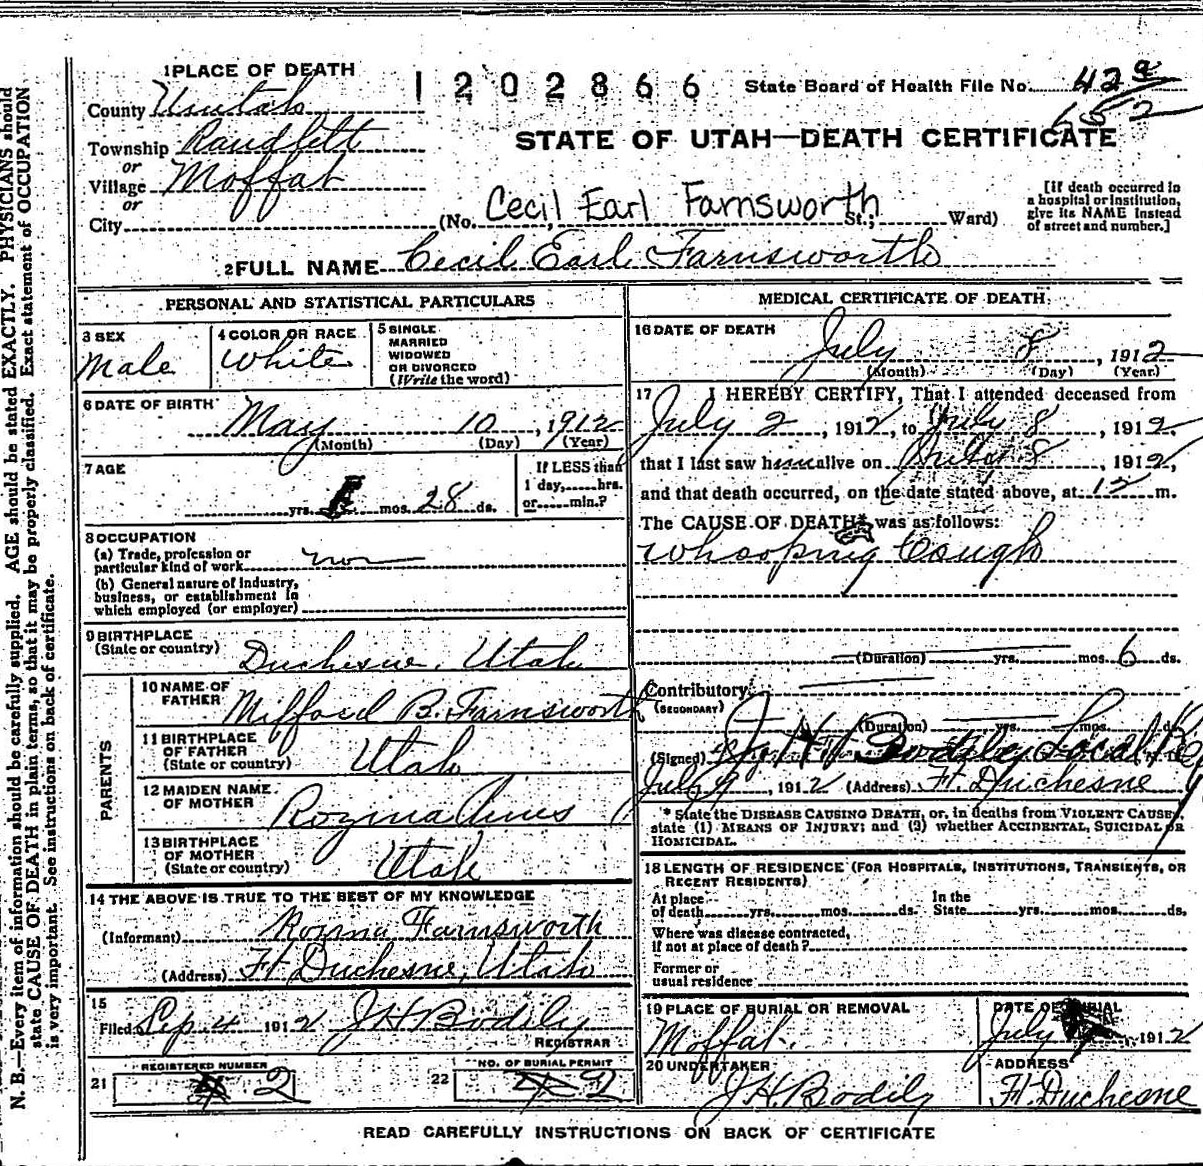 1 PLACE OF DEATH
1202866
State Board of Health File No. 42 a
652
County Uintah
STATE OF UTAH—DEATH CERTIFICATE
Township Randlett
or
Village Moffat
or
City (No. Cecil Earl Farnsworth St.; Ward)
[If death occurred in
a hospital or institution,
give its NAME instead
of street and number.]
2 FULL NAME Cecil Earl Farnsworth
PERSONAL AND STATISTICAL PARTICULARS
3 SEX
Male
4 COLOR OR RACE
White
5 SINGLE
MARRIED
WIDOWED
OR DIVORCED
(Write the word)
6 DATE OF BIRTH
May 10, 1912
(Month) (Day) (Year)
7 AGE
yrs. mos. 28 ds.
If LESS than
1 day, hrs.
or min.?
8 OCCUPATION
(a) Trade, profession or
particular kind of work non
(b) General nature of industry,
business, or establishment in
which employed (or employer)
9 BIRTHPLACE
(State or country) Duchesne, Utah
PARENTS
10 NAME OF
FATHER Mifford B. Farnsworth
11 BIRTHPLACE
OF FATHER
(State or country) Utah
12 MAIDEN NAME
OF MOTHER Rozina
13 BIRTHPLACE
OF MOTHER
(State or country) Utah
14 THE ABOVE IS TRUE TO THE BEST OF MY KNOWLEDGE
(Informant) Farnsworth
(Address) Ft. Duchesne, Utah
15
Filed Sep. 4 1912 J H Bodily
REGISTRAR
REGISTERED NUMBER
21 2
NO. OF BURIAL PERMIT
22 2
MEDICAL CERTIFICATE OF DEATH
16 DATE OF DEATH
July 8, 1912
(Month) (Day) (Year)
17 I HEREBY CERTIFY, That I attended deceased from
July 2, 1912, to July 8, 1912,
that I last saw him alive on July 8, 1912,
and that death occurred, on the date stated above, at 12 m.
The CAUSE OF DEATH* was as follows:
Whooping Cough
(Duration) yrs. mos. 6 ds.
Contributory
(SECONDARY)
(Duration) yrs. mos. ds.
(Signed) J H Bodily Local Reg
July 9, 1912 (Address) Ft. Duchesne
* State the DISEASE CAUSING DEATH, or, in deaths from VIOLENT CAUSES,
state (1) MEANS OF INJURY; and (2) whether ACCIDENTAL, SUICIDAL or
HOMICIDAL.
18 LENGTH OF RESIDENCE (FOR HOSPITALS, INSTITUTIONS, TRANSIENTS, OR
RECENT RESIDENTS)
At place
of death yrs. mos. ds.
In the
State yrs. mos. ds.
Where was disease contracted,
if not at place of death?
Former or
usual residence
19 PLACE OF BURIAL OR REMOVAL
Moffat
DATE OF BURIAL
July 1912
20 UNDERTAKER
J H Bodily
ADDRESS
Ft. Duchesne
READ CAREFULLY INSTRUCTIONS ON BACK OF CERTIFICATE
N. B.—Every item of information should be carefully supplied. AGE should be stated EXACTLY. PHYSICIANS should
state CAUSE OF DEATH in plain terms, so that it may be properly classified. Exact statement of OCCUPATION
is very important. See instructions on back of certificate.